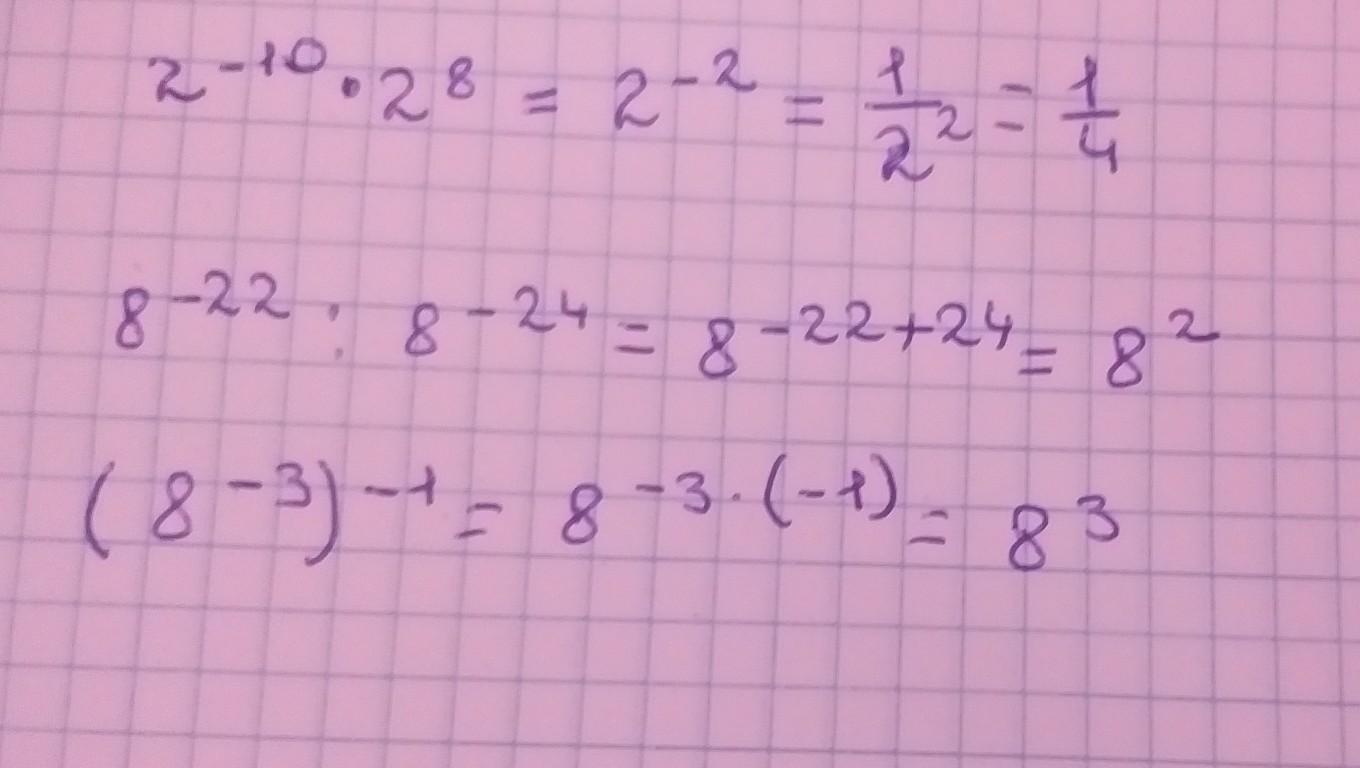 2⁻¹⁰ · 2⁸ = 2⁻² = 1/2² = 1/4
8⁻²² : 8⁻²⁴ = 8⁻²²⁺²⁴ = 8²
(8⁻³)⁻¹ = 8^(-3 · (-1)) = 8³